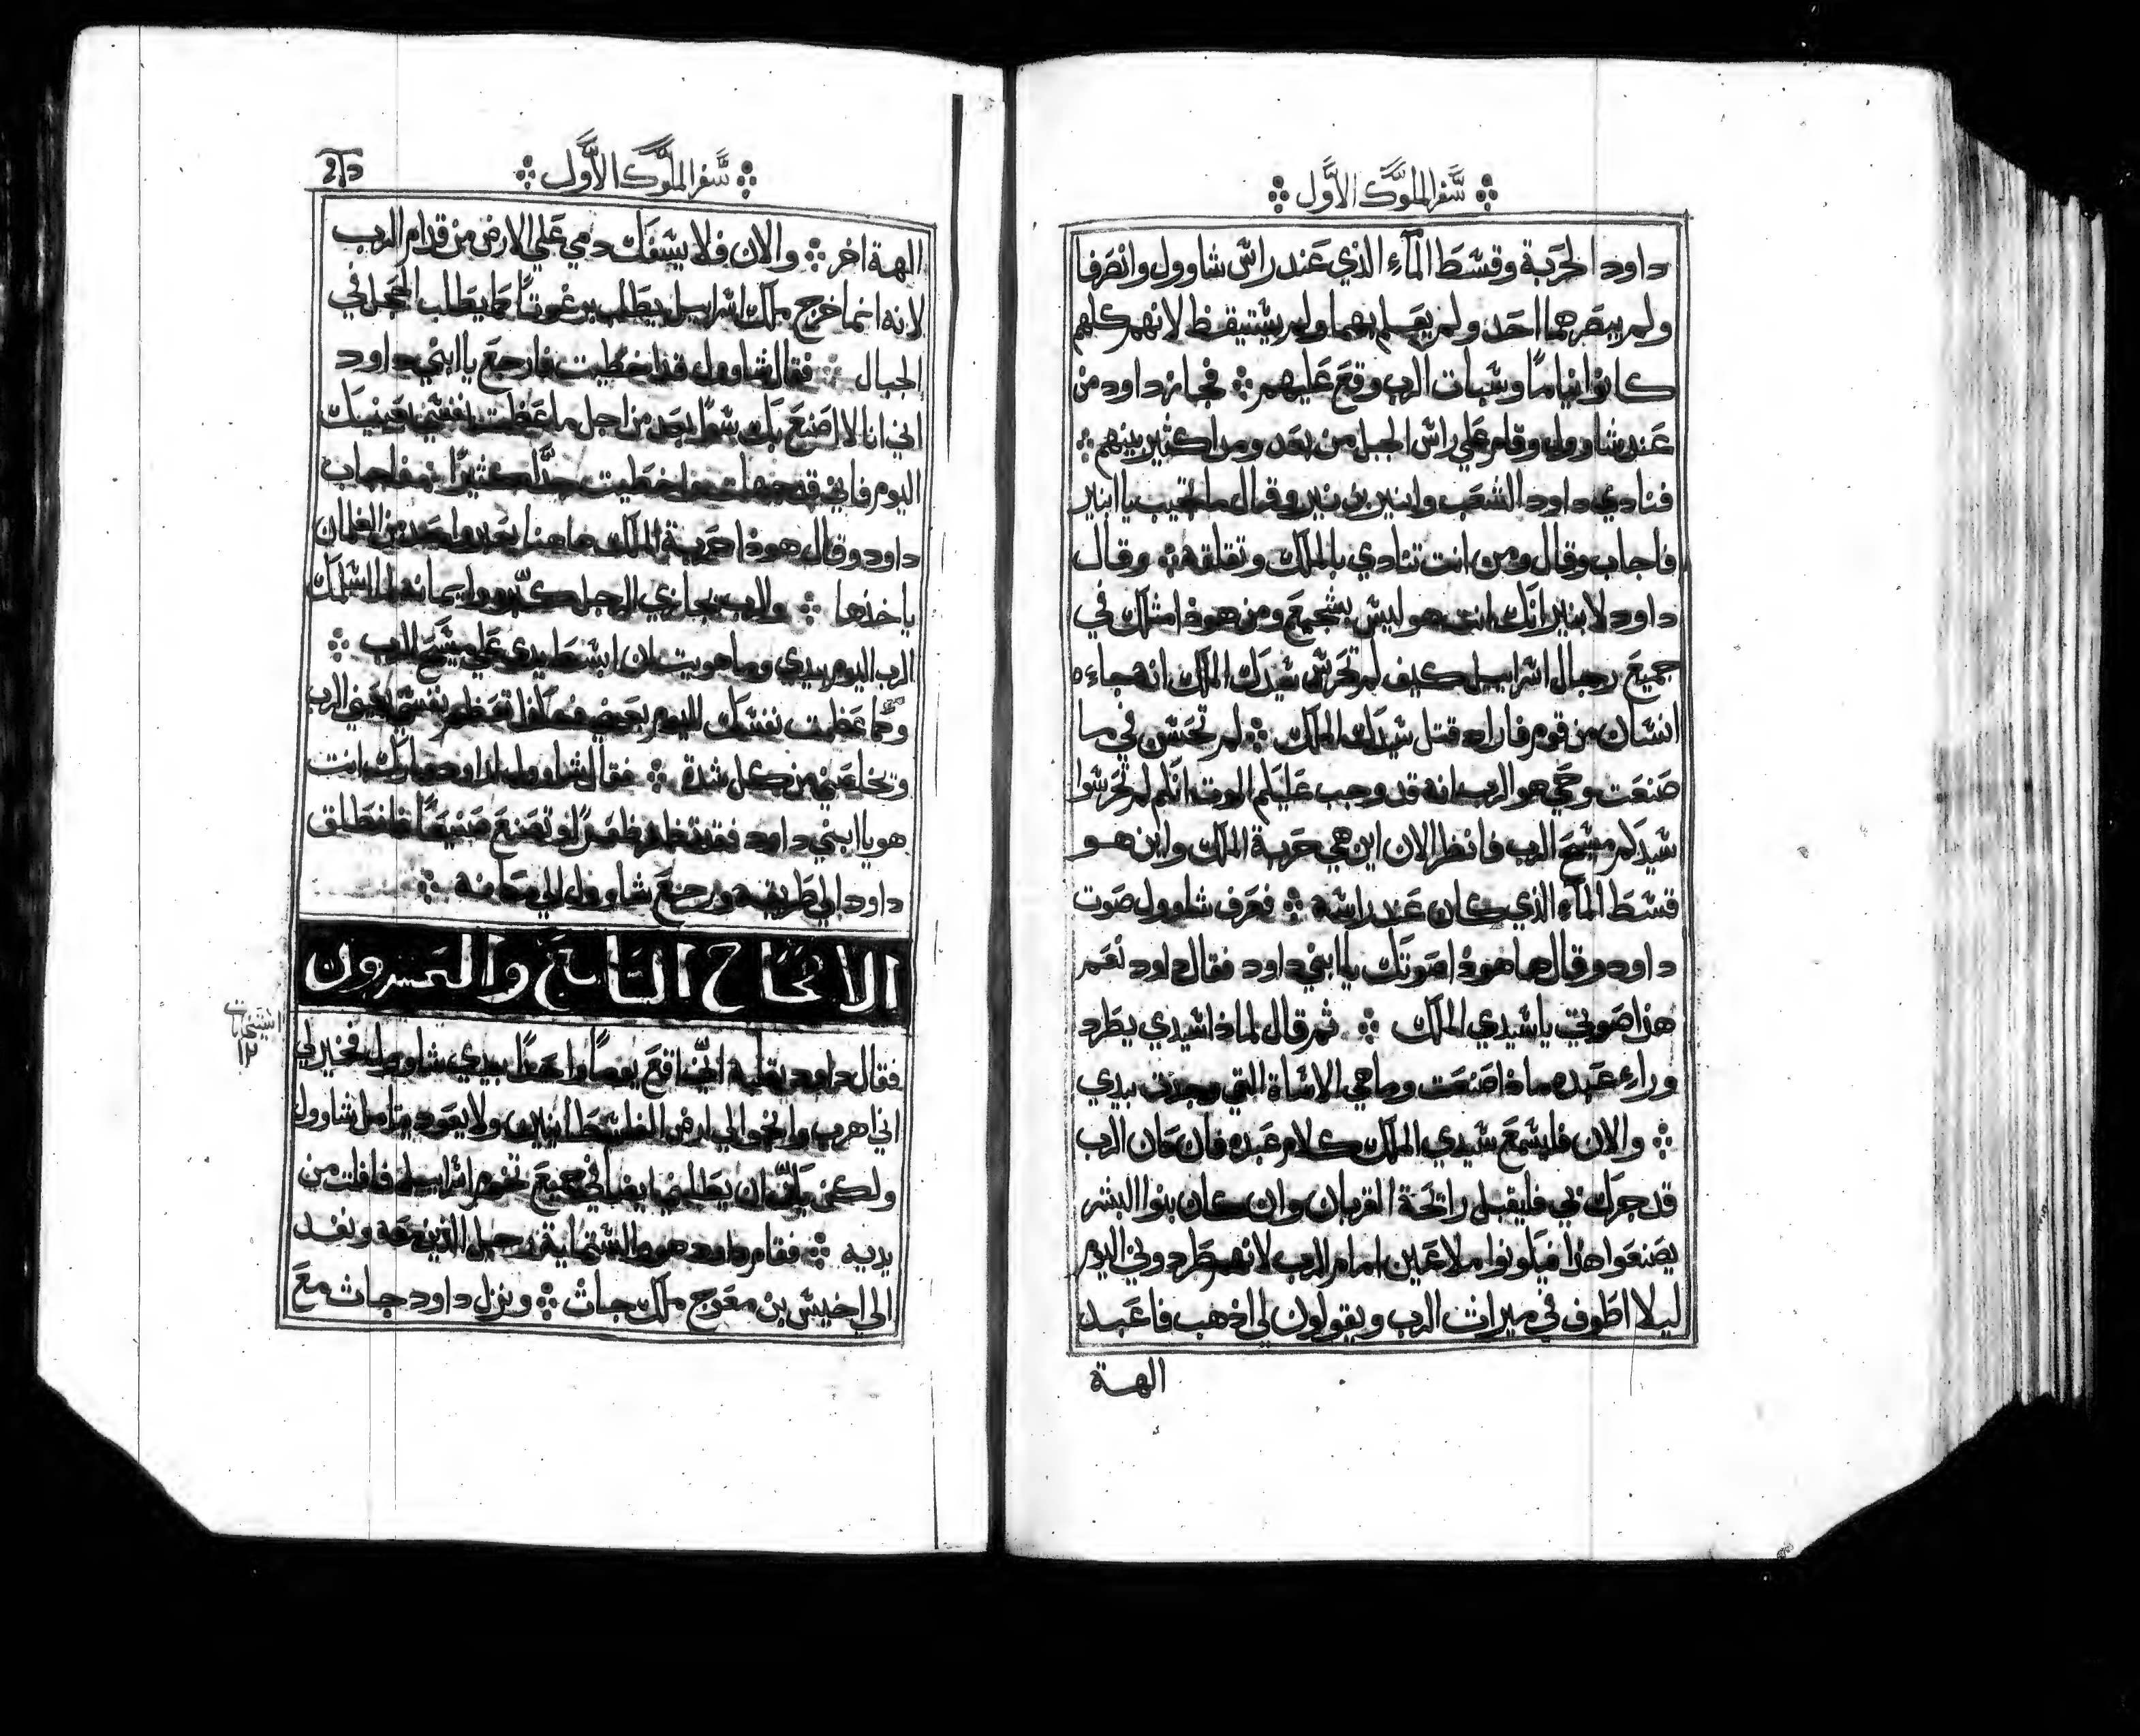 سفر الملوك الاول
داود الحربة وقسط المآء الذي عند راس شاوول وانصرفا
ولم يبصرهما احد ولم يعلم بهما ولم يستيقظ لانهم كلهم
كانوا نياما وسبات الرب وقع عليهم فجاز داود من
عند شاوول وقام علي راس الجبل من بعد ومدا كثير بينهم
فنادي داود الشعب وابنير بن نير وقال ما تجيب يا ابنير
فاجاب وقال ومن انت تنادي بالملك وتقلقه وقال
داود لابنير انك انت هو ليس بشجيع ومن هوذا مثلك في
جميع رجال اسراييل كيف لم تحرس سيدك الملك انه جاء
انسان من قوم فاراد قتل سيدك الملك لم تحسن في ما
صنعت وحي هو الرب انه قد وجب عليكم الموت انكم لم تحرسوا
سيدكم مسيح الرب فانظر الان اين هي حربة الملك واين هو
قسط المآء الذي كان عند راسه فعرف شاوول صوت
داود وقال هاهوذا صوتك يا ابني داود فقال داود نعم
هذا صوتي يا سيدي الملك ثم قال لماذا سيدي يطرد
وراء عبده ماذا صنعت وما هي الاساة التي وجدت بيدي
والان فليسمع سيدي الملك كلام عبده فان كان الرب
قد حرك بي فليقبل رائحة القربان وان كان بنوا البشر
يصنعوا هذا فيكونوا ملاعين امام الرب لانهم طردوني اليوم
ليلا اطوف في ميراث الرب ويقولون لي اذهب فاعبد
الهة
سفر الملوك الاول
الهة اخر والان فلا يسفك دمي علي الارض من قدام الرب
لانه انما خرج ملك اسراييل يطلب برغوتا كما يطلب الحجل في
الجبال فقال شاوول قد اخطيت فارجع يا ابني داود
اني انا لا اصنع بك سوا بعد من اجل ما عظمت نفسي في عينيك
اليوم فاني قد جهلت واخطيت جدا كثيرا فاجاب
داود وقال هوذا حربة الملك هاهنا يعبر واحد من الغلمان
ياخذها والرب يجازي الرجل كبره وايمانه اسلمك
الرب اليوم بيدي وما هويت ان ابسط يدي علي مسيح الرب
وكما عظمت نفسك اليوم هكذا تعظم نفسي الرب
وتخلصني من كل شدة فقال شاوول لداود مبارك انت
هو يا ابني داود وتصنع صنيعا فانطلق
داود الي طريقه ورجع شاوول الي مكانه
الاصحاح التاسع والعشرون
فقال داود بقلبه اني اقع يوما واحدا بيدي شاوول فخير لي
اني اهرب وانجوا الي ارض الفلسطانيين ولا يعود يتامل شاوول
ولكن ان يطلبني ايضا في جميع تخوم اسراييل فافلت من
يديه فقام داود هو والستماية رجل الذين معه ونفد
الي اخيش بن معوج ملك جاث ونزل داود جاث مع